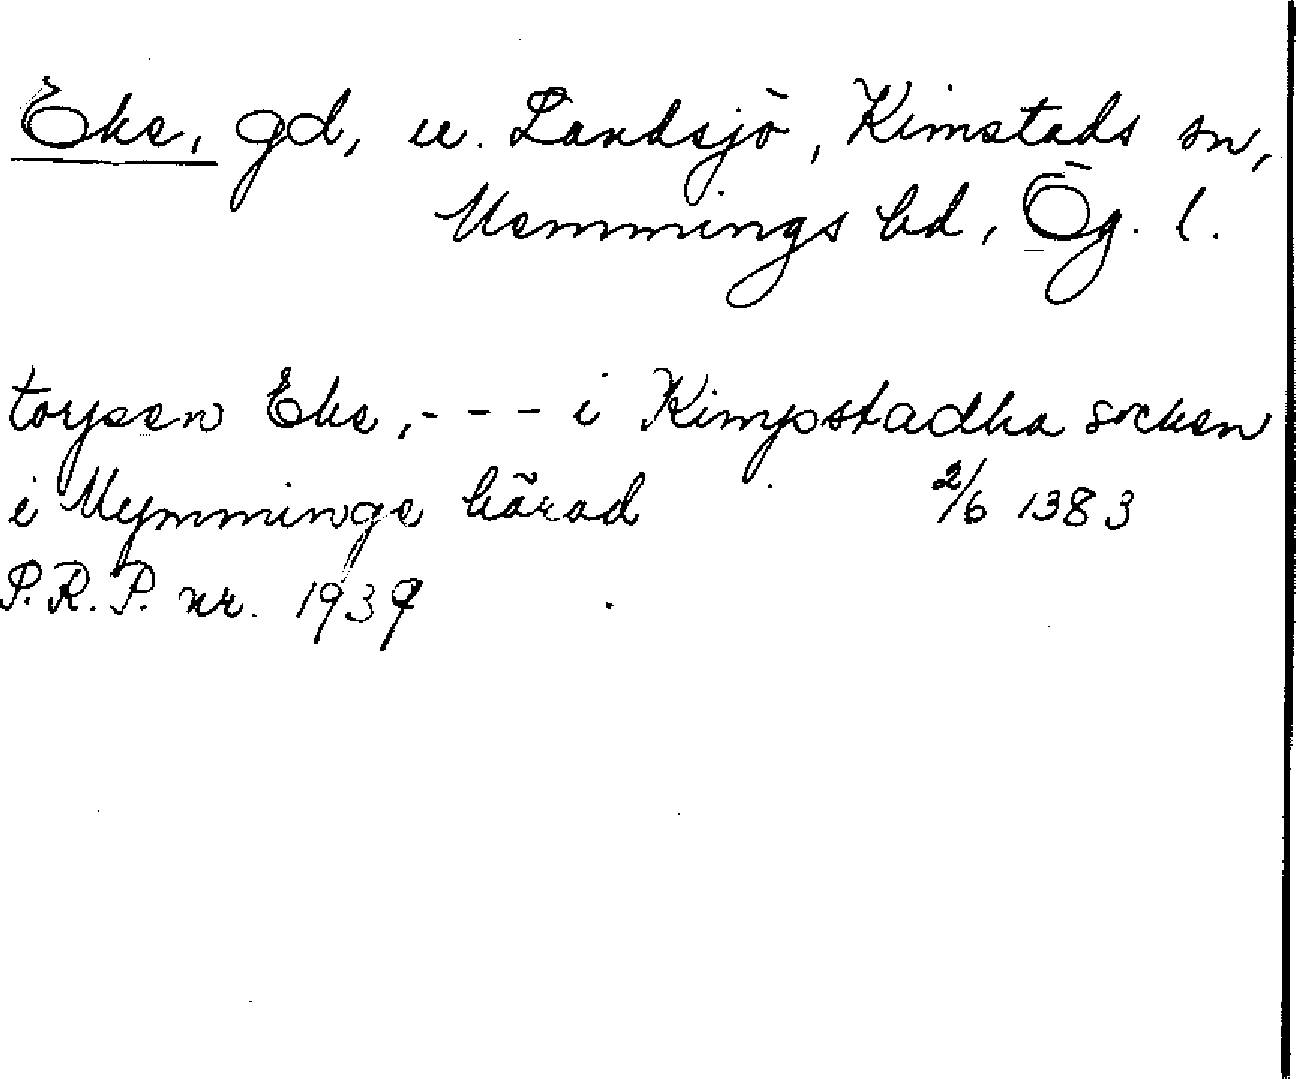 Eke, gd, u. Landsjö, Kimstads sn,
Memmings hd, Ög. l.
torpsen Eke, - - - i Kimpstadha socken
i Mymminge härad 2/6 1383
P.R.P. nr. 1939